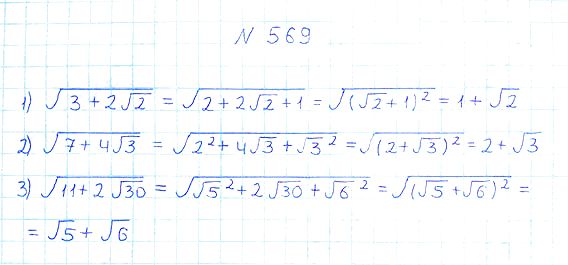 N 569
1) √(3 + 2√2) = √(2 + 2√2 + 1) = √((√2 + 1)²) = 1 + √2
2) √(7 + 4√3) = √(2² + 4√3 + √3²) = √((2 + √3)²) = 2 + √3
3) √(11 + 2√30) = √(√5² + 2√30 + √6²) = √((√5 + √6)²) =
= √5 + √6